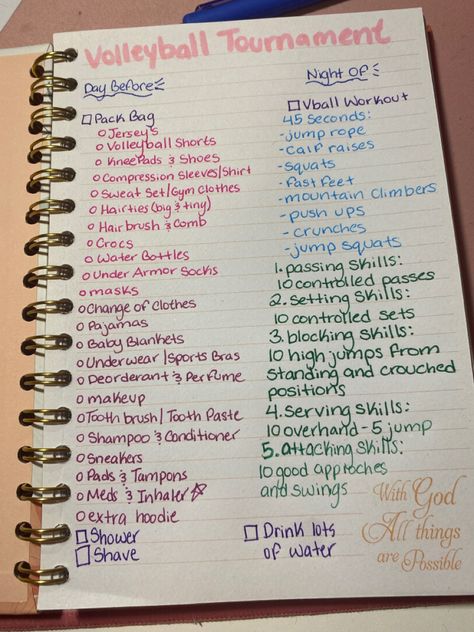 Volleyball Tournament
Day Before
□ Pack Bag
o Jersey's
o Volleyball Shorts
o KneePads & Shoes
o Compression Sleeves/Shirt
o Sweat Set/Gym clothes
o Hairties (big & tiny)
o Hair brush & Comb
o Crocs
o Water Bottles
o Under Armor Socks
o masks
o Change of Clothes
o Pajamas
o Baby Blankets
o Underwear/Sports Bras
o Deorderant & Perfume
o makeup
o Tooth brush/Tooth Paste
o Shampoo & Conditioner
o Sneakers
o Pads & Tampons
o Meds & Inhaler ☆
o extra hoodie
□ Shower
□ Shave
Night Of
□ Vball Workout
45 seconds:
-jump rope
-calf raises
-squats
-fast feet
-mountain climbers
-push ups
-crunches
-jump squats
1. passing skills:
10 controlled passes
2. setting skills:
10 controlled sets
3. blocking skills:
10 high jumps from
standing and crouched
positions
4. serving skills:
10 overhand - 5 jump
5. attacking skills:
10 good approches
and swings
□ Drink lots
of water
With God
All things
are Possible